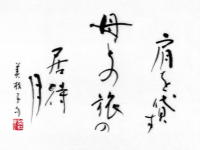 肩を貸す
母との旅の
居待月
美枝子句